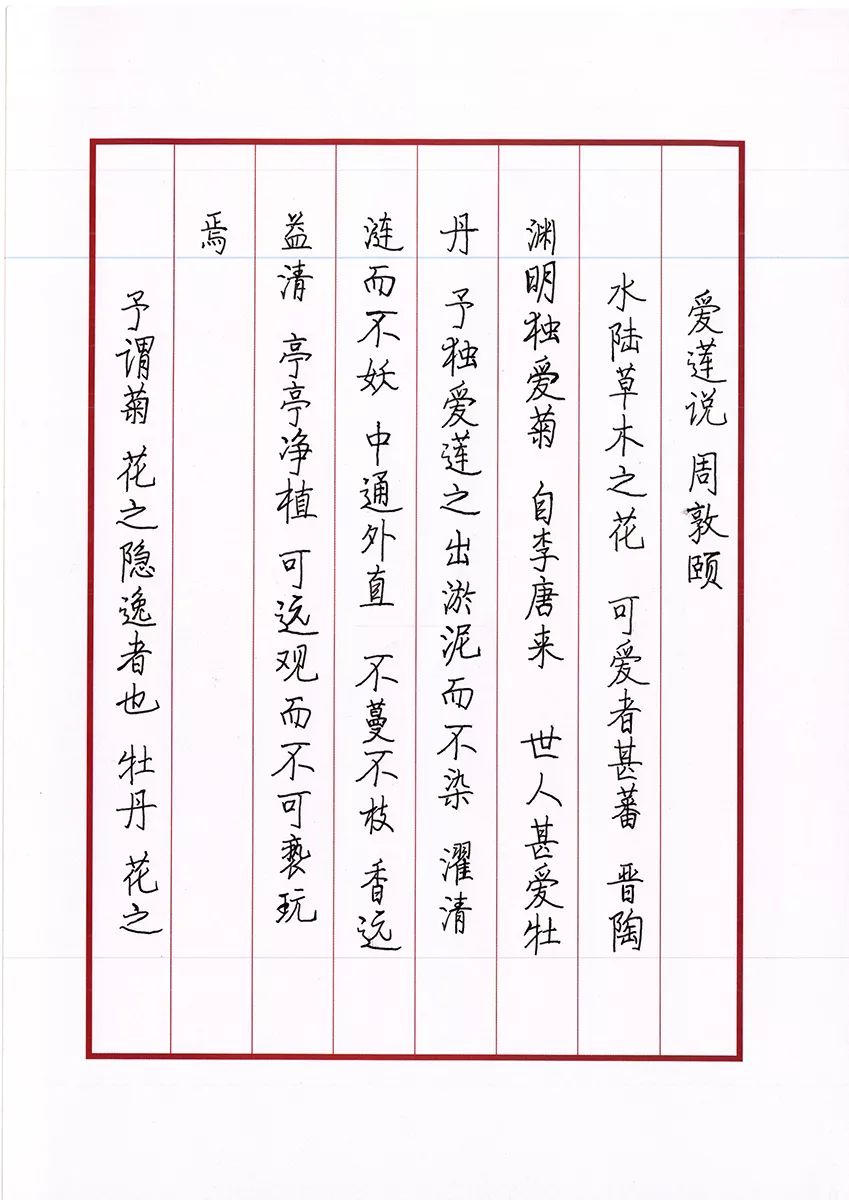 爱莲说 周敦颐
水陆草木之花 可爱者甚蕃 晋陶
渊明独爱菊 自李唐来 世人甚爱牡
丹 予独爱莲之出淤泥而不染 濯清
涟而不妖 中通外直 不蔓不枝 香远
益清 亭亭净植 可远观而不可亵玩
焉
予谓菊 花之隐逸者也 牡丹 花之